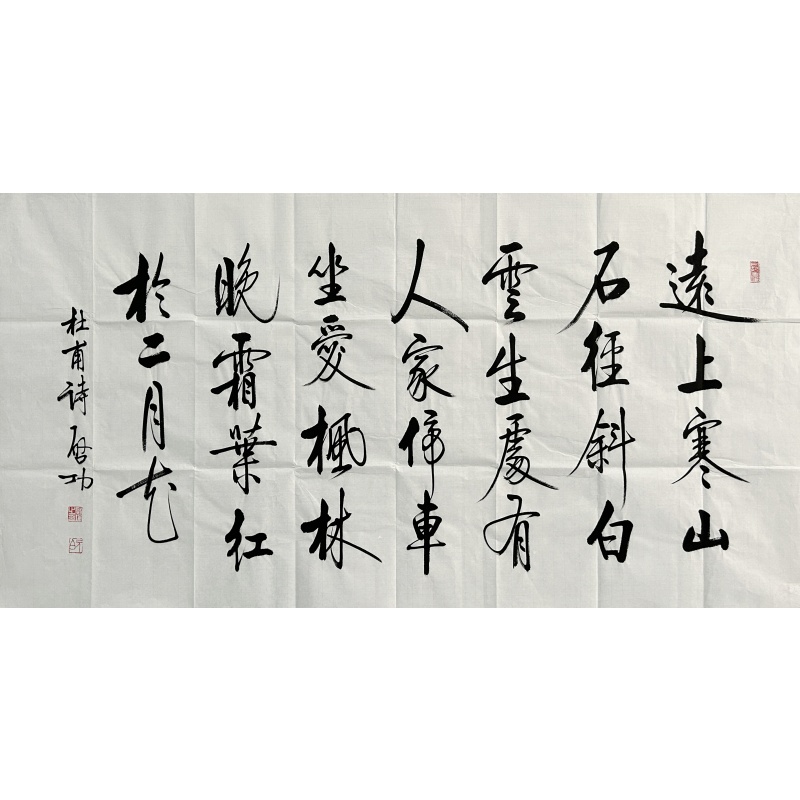 遠上寒山
石徑斜白
雲生處有
人家停車
坐愛楓林
晚霜葉紅
於二月花
杜甫詩 啟功